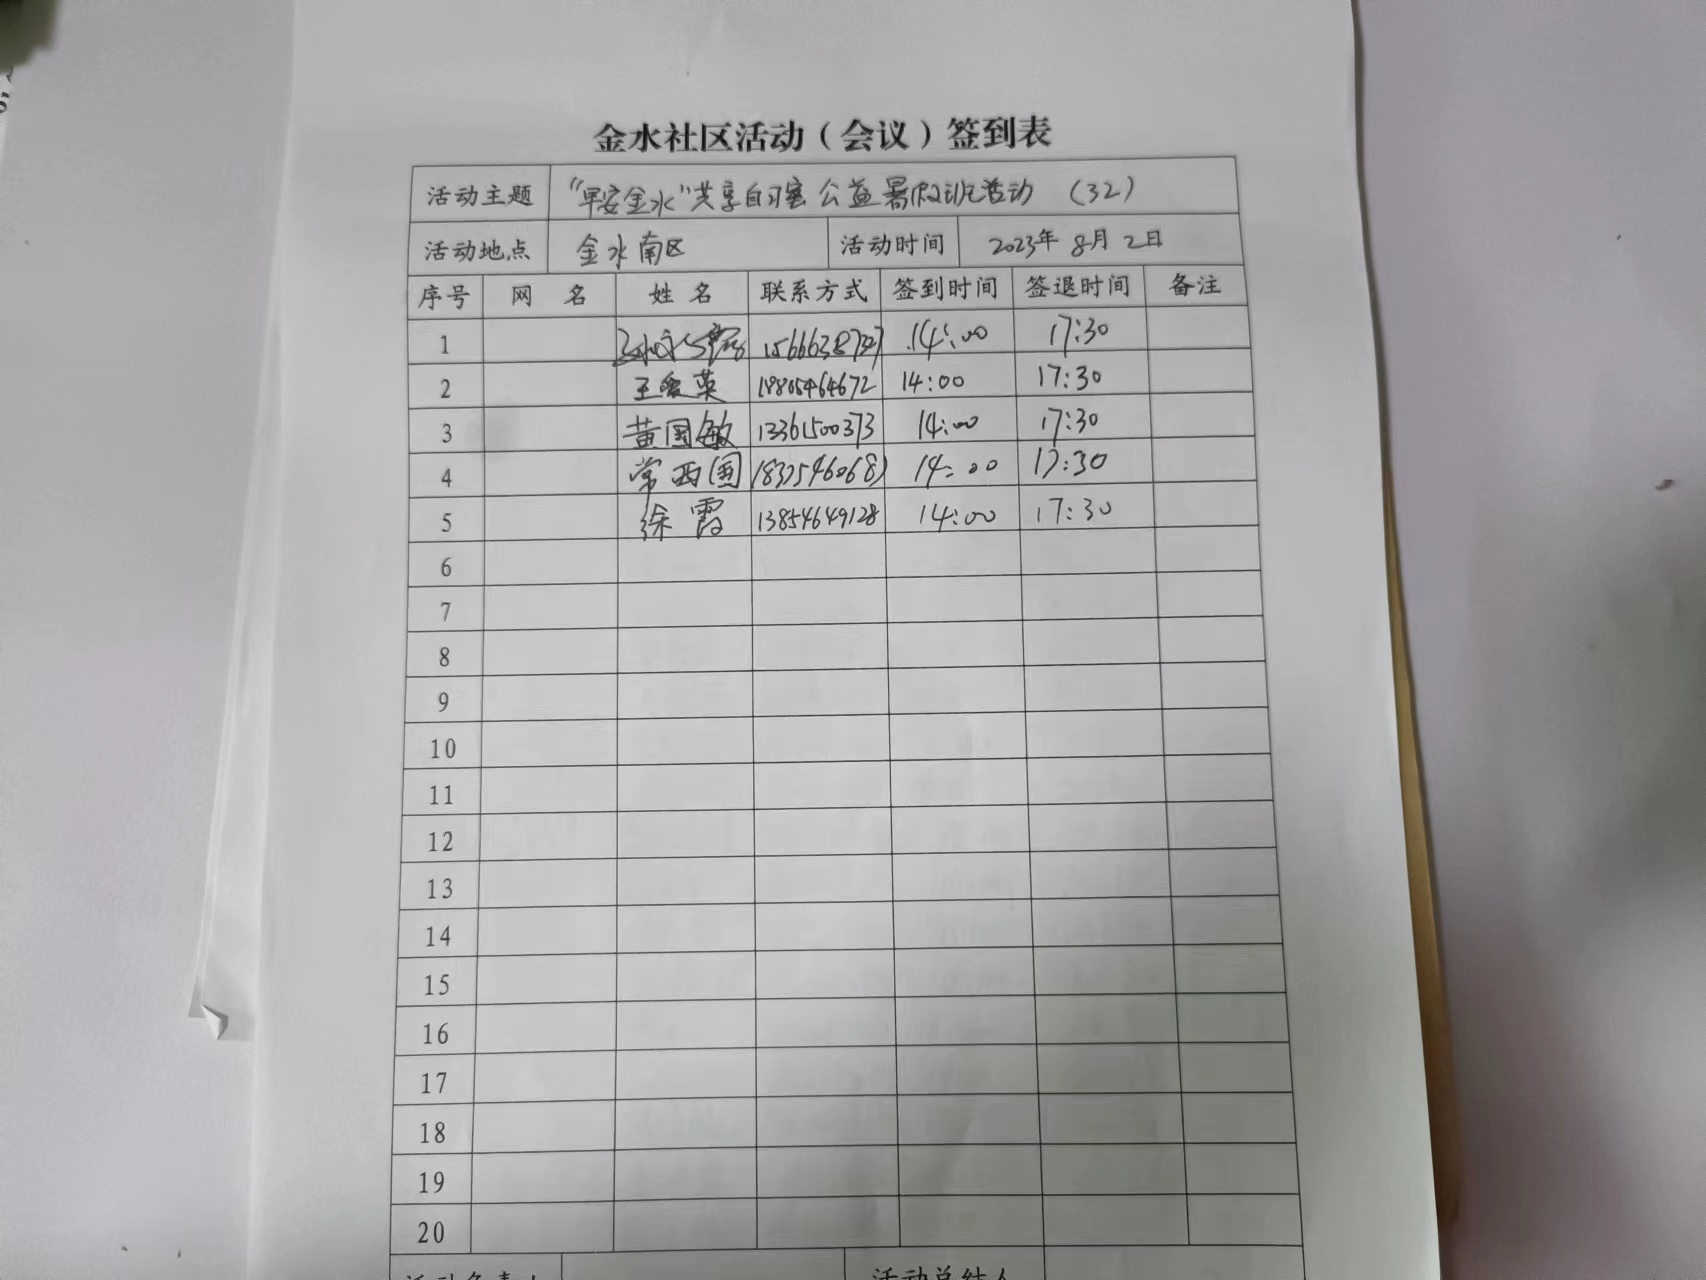 金水社区活动（会议）签到表
活动主题 “早安金水”共享自习室公益暑假班活动 （32）
活动地点 金水南区 活动时间 2023年8月2日
序号 网 名 姓 名 联系方式 签到时间 签退时间 备注
1 14:00 17:30
2 王爱英 18805464672 14:00 17:30
3 黄国敏 13361500373 14:00 17:30
4 常西国 14:00 17:30
5 徐霞 13854649128 14:00 17:30
6
7
8
9
10
11
12
13
14
15
16
17
18
19
20
活动负责人 活动总结人